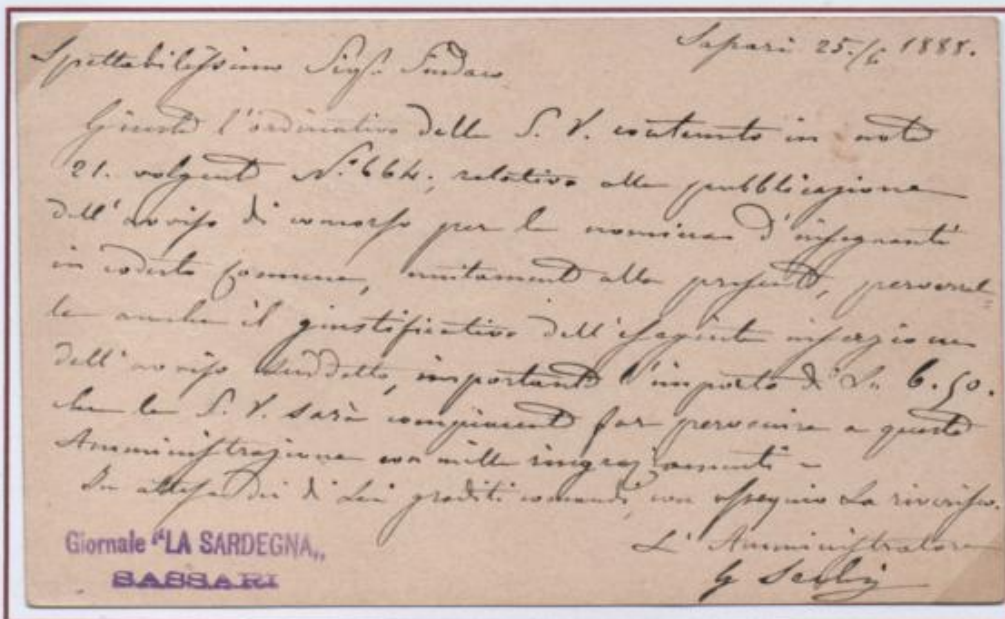 Sassari 25./6 1888.
Spettabilissimo Sigr. Sindaco
Giusta l'ordinativo della S. V. contenuto in nota
21. volgente N.° 664, relativo alla pubblicazione
dell'avviso di concorso per la nomina d'insegnanti
in codesto Comune, unitamente alla presente, perverrà=
le anche il giustificativo dell'eseguita inserzione
dell'avviso suddetto, importante l'importo di Ln 6.50.
che la S. V. sarà compiacente far pervenire a questa
Amministrazione con mille ringraziamenti -
In attesa dei di Lei graditi comandi, con ossequio La riverisco.
L'Amministratore
G
Giornale "LA SARDEGNA„
SASSARI